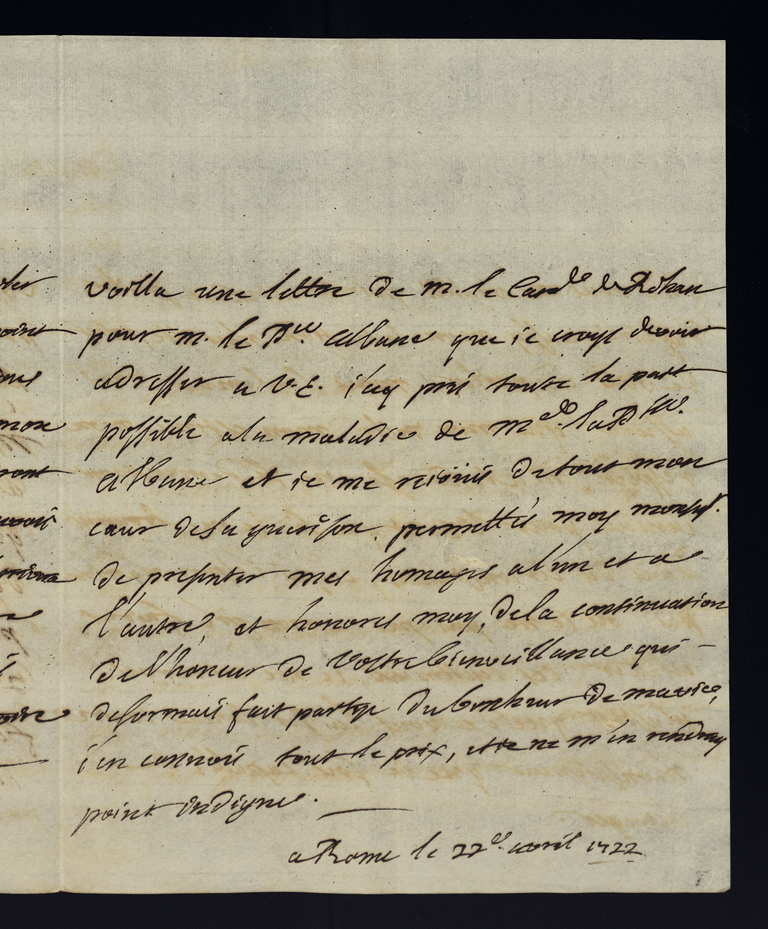 voilla une lettre de m. le Card.le de Rohan
pour m. le P.ce Albane que ie croys devoir
adresser a V.E. i'ay pris toute la part
possible a la maladie de m.de la P.sse
Albane et ie me reiouis de tout mon
cœur de sa guerison. permettés moy monsg.r
de presenter mes homages a l'un et a
l'autre, et honorés moy, de la continuation
de l'honeur de vostre bienveillance qui
desormais fait partye du bonheur de ma vie,
i'en connois tout le prix, et ie ne m'en rendray
point indigne.
a Rome le 22.e avril 1722